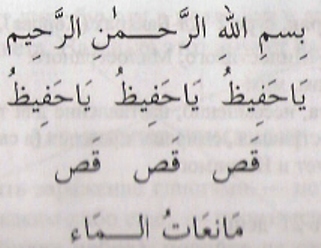 بِسمِ اللهِ الرَّحْـمٰنِ الرَّحِيمِ
يَاحَفِيظُ يَاحَفِيظُ يَاحَفِيظُ
قَص قَص قَص
مَانِعَاتُ الـمَاء